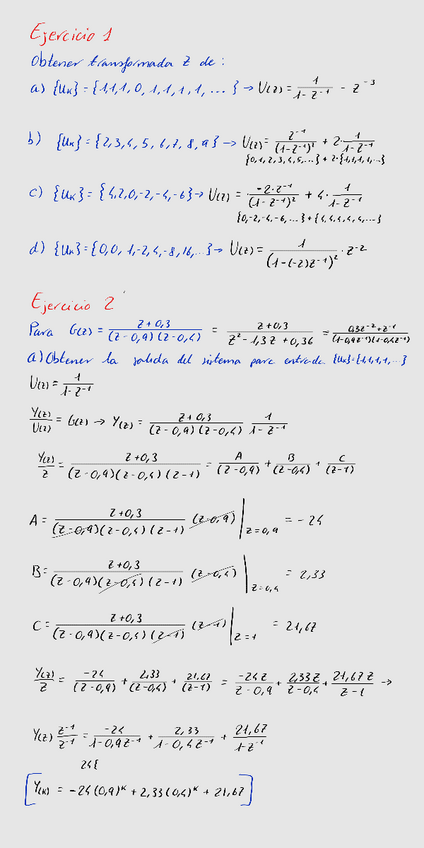 Ejercicio 1
Obtener transformada Z de:
a) {Uk} = {1,1,1,0,1,1,1,1,...} → U(z) = 1/(1-z^-1) - z^-3
b) {Uk} = {2,3,4,5,6,7,8,9} → U(z) = z^-1/(1-z^-1)² + 2·1/(1-z^-1)
{0,1,2,3,4,5,...} + 2·{1,1,1,1,...}
c) {Uk} = {4,2,0,-2,-4,-6} → U(z) = -2·z^-1/(1-z^-1)² + 4·1/(1-z^-1)
{0,-2,-4,-6,...} + {4,4,4,4,...}
d) {Uk} = {0,0,1,-2,4,-8,16,...} → U(z) = 1/(1-(-2)z^-1)² · z^-2
Ejercicio 2
Para G(z) = (z+0,3)/((z-0,9)(z-0,4)) = (z+0,3)/(z²-1,3z+0,36) = (0,3z^-2+z^-1)/((1-0,9z^-1)(1-0,4z^-1))
a) Obtener la salida del sistema para entrada {Uk}={1,1,1,1,...}
U(z) = 1/(1-z^-1)
Y(z)/U(z) = G(z) → Y(z) = (z+0,3)/((z-0,9)(z-0,4)) 1/(1-z^-1)
Y(z)/z = (z+0,3)/((z-0,9)(z-0,4)(z-1)) = A/(z-0,9) + B/(z-0,4) + C/(z-1)
A = (z+0,3)/((z-0,9)(z-0,4)(z-1)) (z-0,9) | z=0,9 = -24
B = (z+0,3)/((z-0,9)(z-0,4)(z-1)) (z-0,4) | z=0,4 = 2,33
C = (z+0,3)/((z-0,9)(z-0,4)(z-1)) (z-1) | z=1 = 21,67
Y(z)/z = -24/(z-0,9) + 2,33/(z-0,4) + 21,67/(z-1) = -24z/(z-0,9) + 2,33z/(z-0,4) + 21,67z/(z-1) →
Y(z) z^-1/z^-1 = -24/(1-0,9z^-1) + 2,33/(1-0,4z^-1) + 21,67/(1-z^-1)
Y(k) = -24(0,9)^k + 2,33(0,4)^k + 21,67